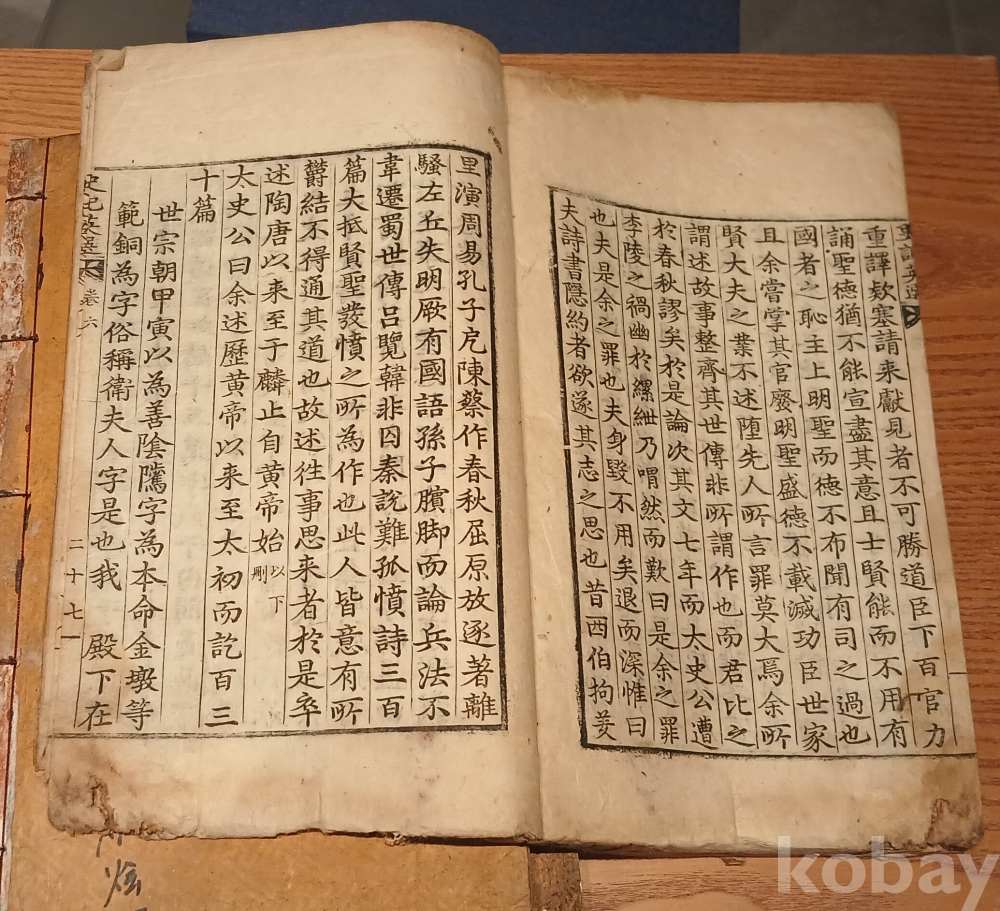 重譯欵塞請来獻見者不可勝道臣下百官力
誦聖德猶不能宣盡其意且士賢能而不用有
國者之恥主上明聖而德不布聞有司之過也
且余嘗掌其官廢明聖盛德不載滅功臣世家
賢大夫之業不述墮先人所言罪莫大焉余所
謂述故事整齊其世傳非所謂作也而君比之
於春秋謬矣於是論次其文七年而太史公遭
李陵之禍幽於縲紲乃喟然而歎曰是余之罪
也夫是余之罪也夫身毀不用矣退而深惟曰
夫詩書隱約者欲遂其志之思也昔西伯拘羑
里演周易孔子戹陳蔡作春秋屈原放逐著離
騷左丘失明厥有國語孫子臏脚而論兵法不
韋遷蜀世傳呂覽韓非囚秦說難孤憤詩三百
篇大抵賢聖發憤之所為作也此人皆意有所
欝結不得通其道也故述徃事思来者於是卒
述陶唐以来至于麟止自黄帝始以下刪
太史公曰余述歷黄帝以来至太初而訖百三
十篇
世宗朝甲寅以為善陰騭字為本命金墩等
範銅為字俗稱衛夫人字是也我 殿下在
史記英選 卷六 二十七
kobay